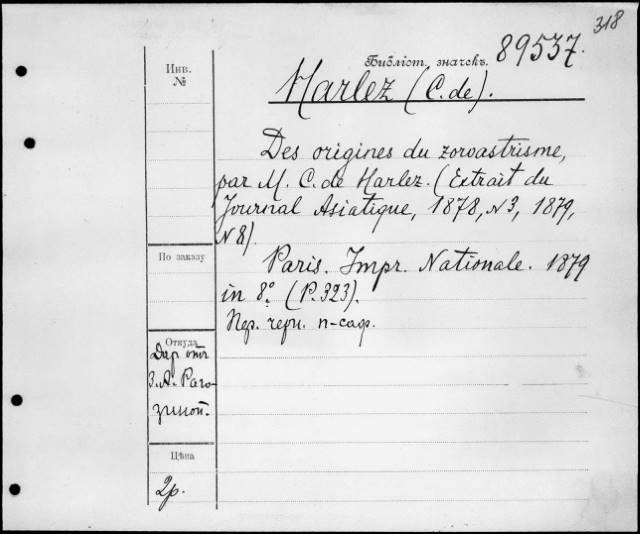 318
Библіот. значекъ. 89537.
Инв.
№
Harlez (C. de).
Des origines du zoroastrisme,
par M. C. de Harlez. (Extrait du
Journal Asiatique, 1878, N 3, 1879,
N 8).
По заказу
Paris. Impr. Nationale. 1879
in 8.° (P. 323).
Пер. черн. п-саф.
Откуда
Дар отъ
З. А. Раго-
зиной.
Цѣна
2р.